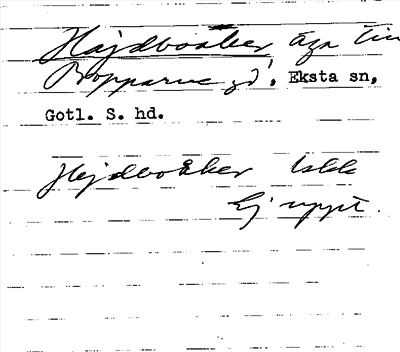 Hajdboaker äga till
Bopparve gd. Eksta sn,
Gotl. S. hd.
Hejdboåker
Ej uppt.